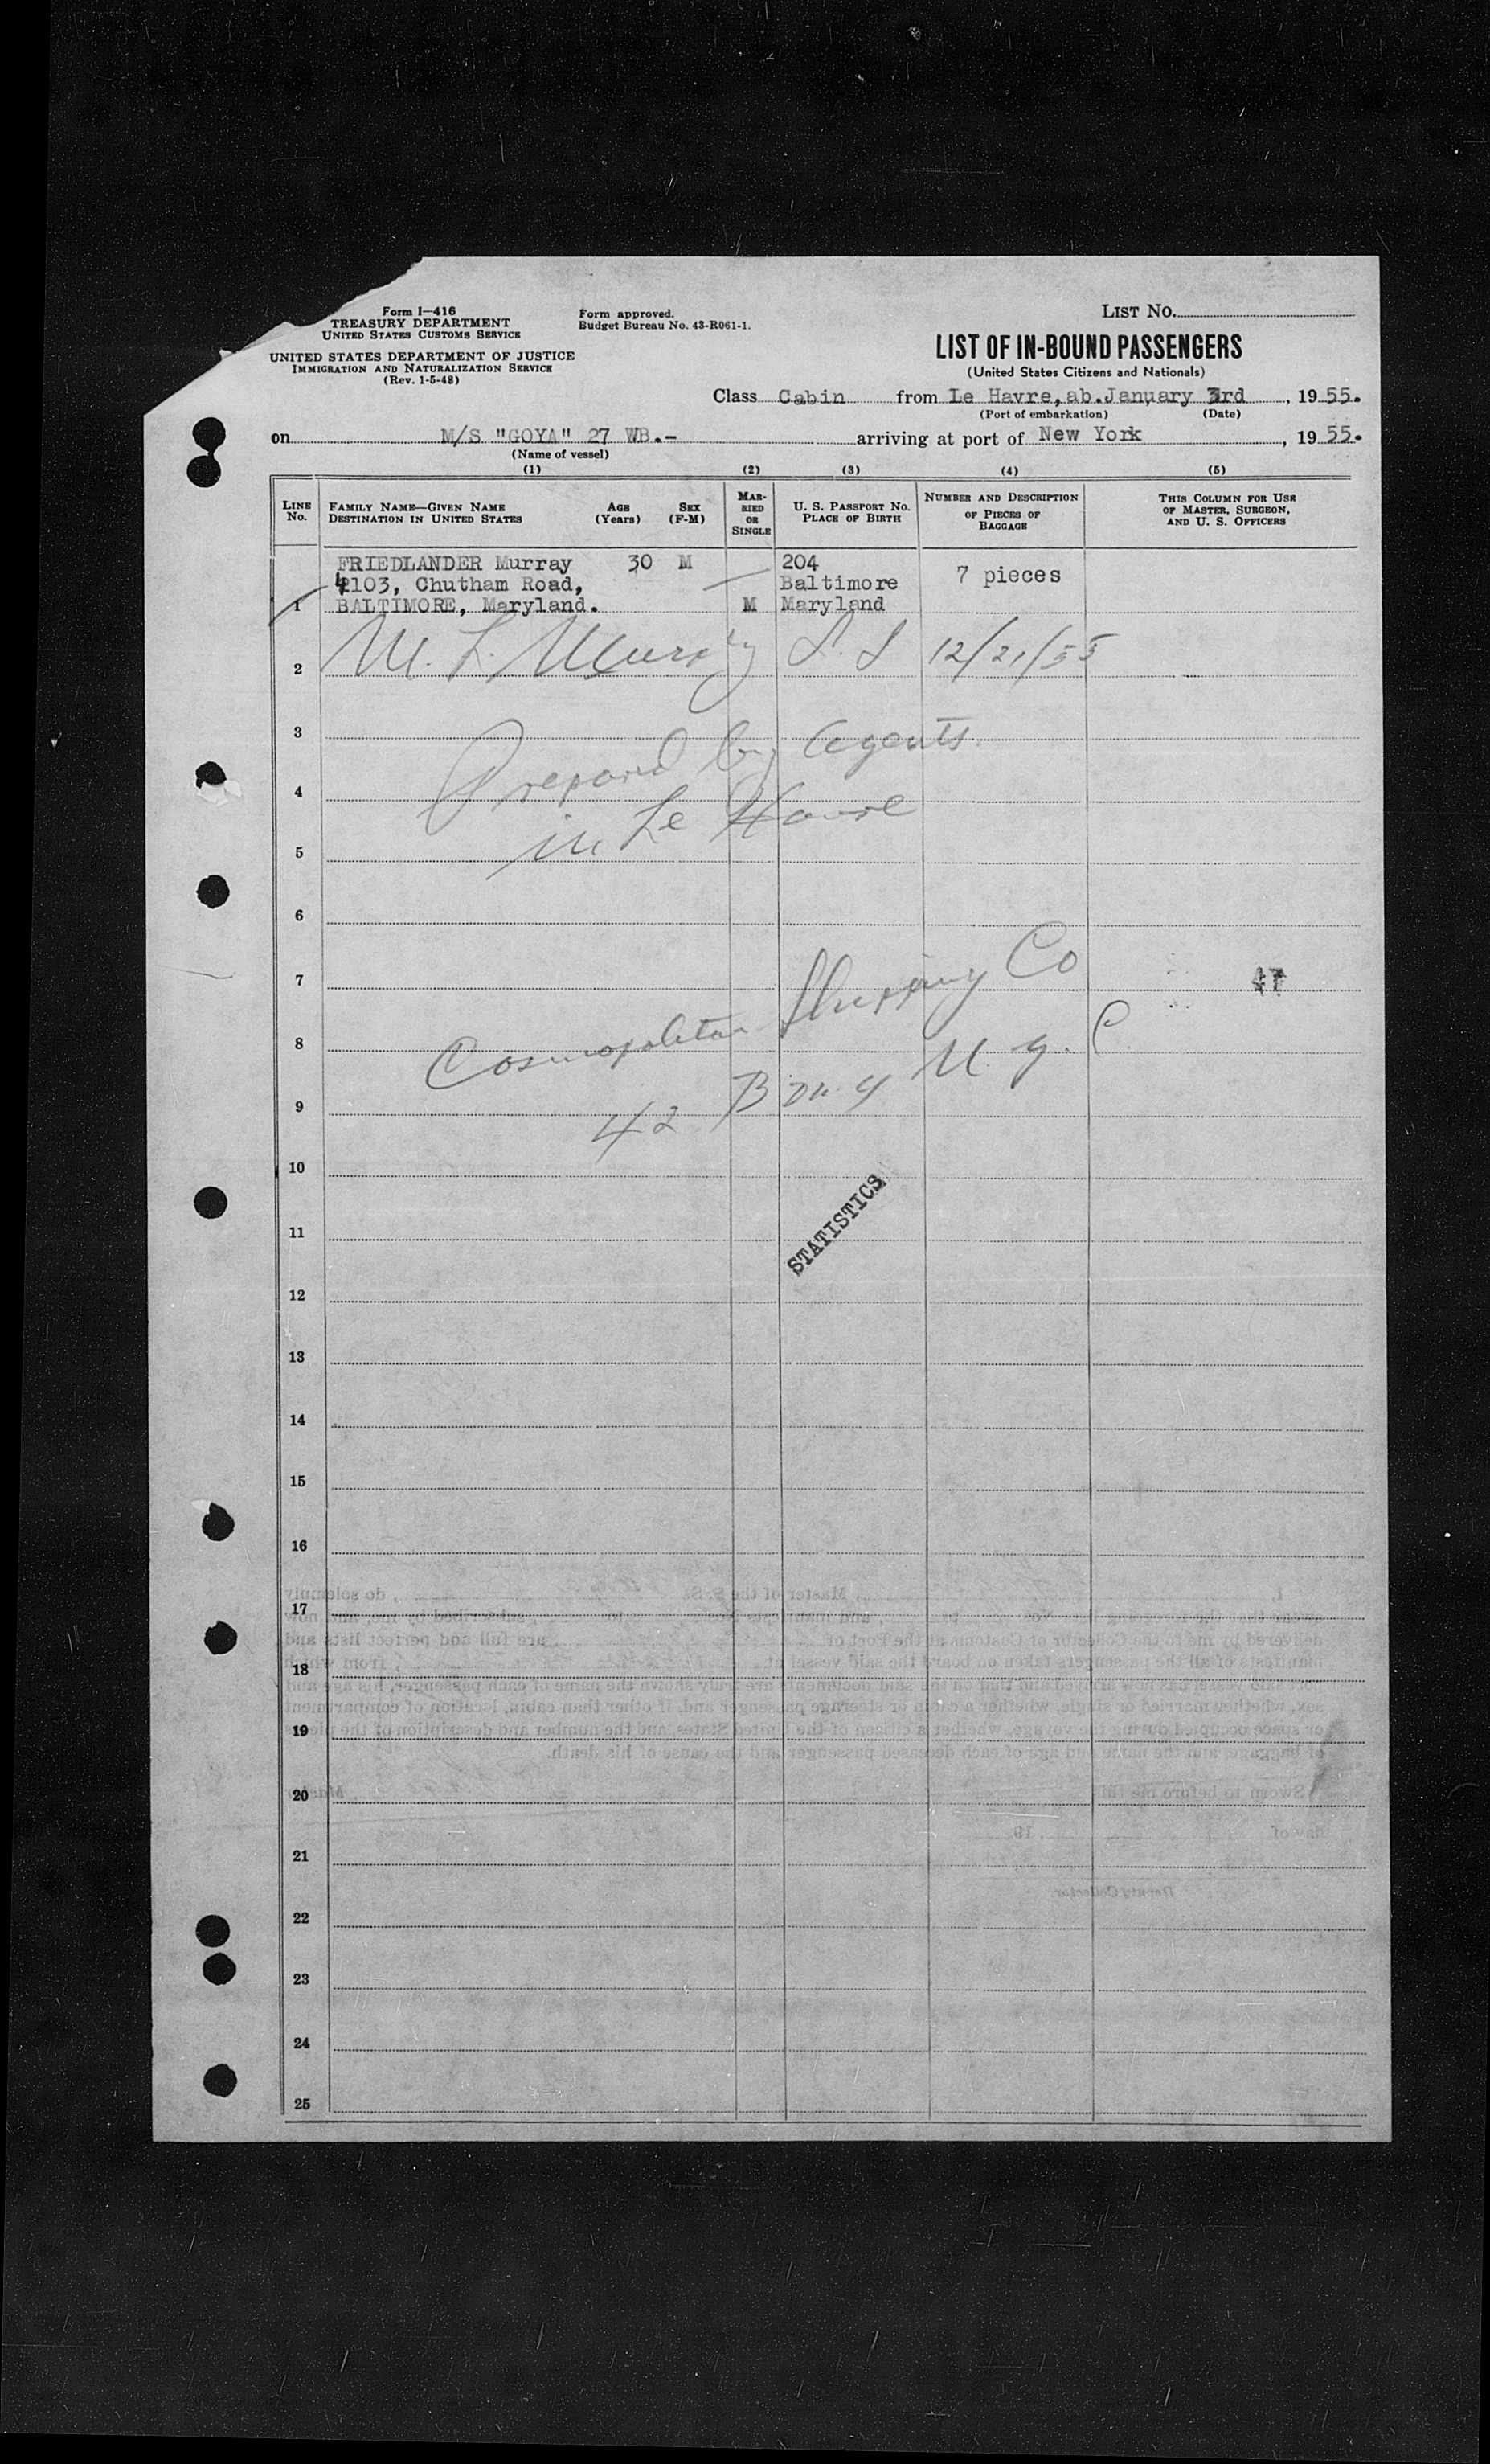 Form I—416
TREASURY DEPARTMENT
UNITED STATES CUSTOMS SERVICE
UNITED STATES DEPARTMENT OF JUSTICE
IMMIGRATION AND NATURALIZATION SERVICE
(Rev. 1-5-48)
Form approved.
Budget Bureau No. 43-R061-1.
LIST NO.
LIST OF IN-BOUND PASSENGERS
(United States Citizens and Nationals)
Class Cabin from Le Havre, ab. January 3rd, 19 55.
(Port of embarkation) (Date)
on M/S "GOYA" 27 WB.- arriving at port of New York, 19 55.
(Name of vessel)
(1) (2) (3) (4) (5)
LINE No.
FAMILY NAME—GIVEN NAME
DESTINATION IN UNITED STATES
AGE (Years)
SEX (F-M)
MAR-RIED OR SINGLE
U. S. PASSPORT NO.
PLACE OF BIRTH
NUMBER AND DESCRIPTION OF PIECES OF BAGGAGE
THIS COLUMN FOR USE OF MASTER, SURGEON, AND U. S. OFFICERS
FRIEDLANDER Murray 30 M 204
4103, Chutham Road, Baltimore 7 pieces
1 BALTIMORE, Maryland. M Maryland
2 M. L. Murphy 12/21/55
3 Prepared by Agents
4 in Le Havre
5
6
7 Cosmopolitan Shipping Co 47
8 42 Bway N.Y.C.
9
10
STATISTICS
11
12
13
14
15
16
I, , Master of the S. S. , do solemnly
17
delivered by me to the Collector of Customs at the Port of are full and perfect lists and
manifests of all the passengers taken on board the said vessel at , from which
18
sex, whether married or single, whether a cabin or steerage passenger and, if other than cabin, location of compartment
or space occupied during the voyage, whether a citizen of the United States, and the number and description of the pieces
19
of baggage; and the name and age of each deceased passenger and the cause of his death.
Sworn to before me this Master
20
day of , 19
21
Deputy Collector.
22
23
24
25